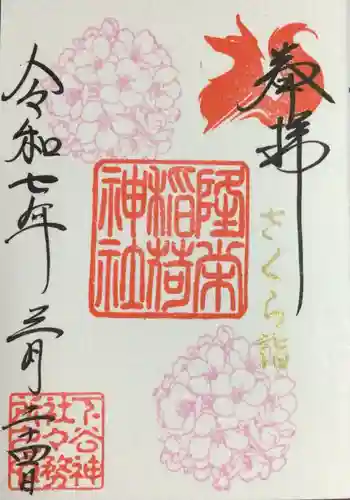 奉拝
さくら詣
隆栄
稲荷
神社
令和七年三月二十四日
下谷神
社々務